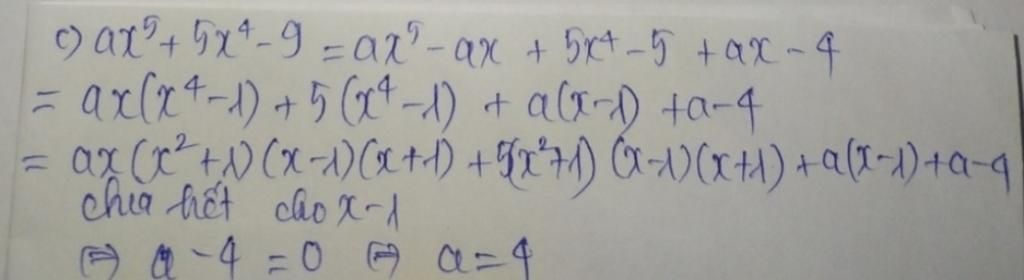 c) ax⁵ + 5x⁴ - 9 = ax⁵ - ax + 5x⁴ - 5 + ax - 4
= ax(x⁴ - 1) + 5(x⁴ - 1) + a(x - 1) + a - 4
= ax(x² + 1)(x - 1)(x + 1) + 5(x² + 1)(x - 1)(x + 1) + a(x - 1) + a - 4
chia hết cho x - 1
⇔ a - 4 = 0 ⇔ a = 4